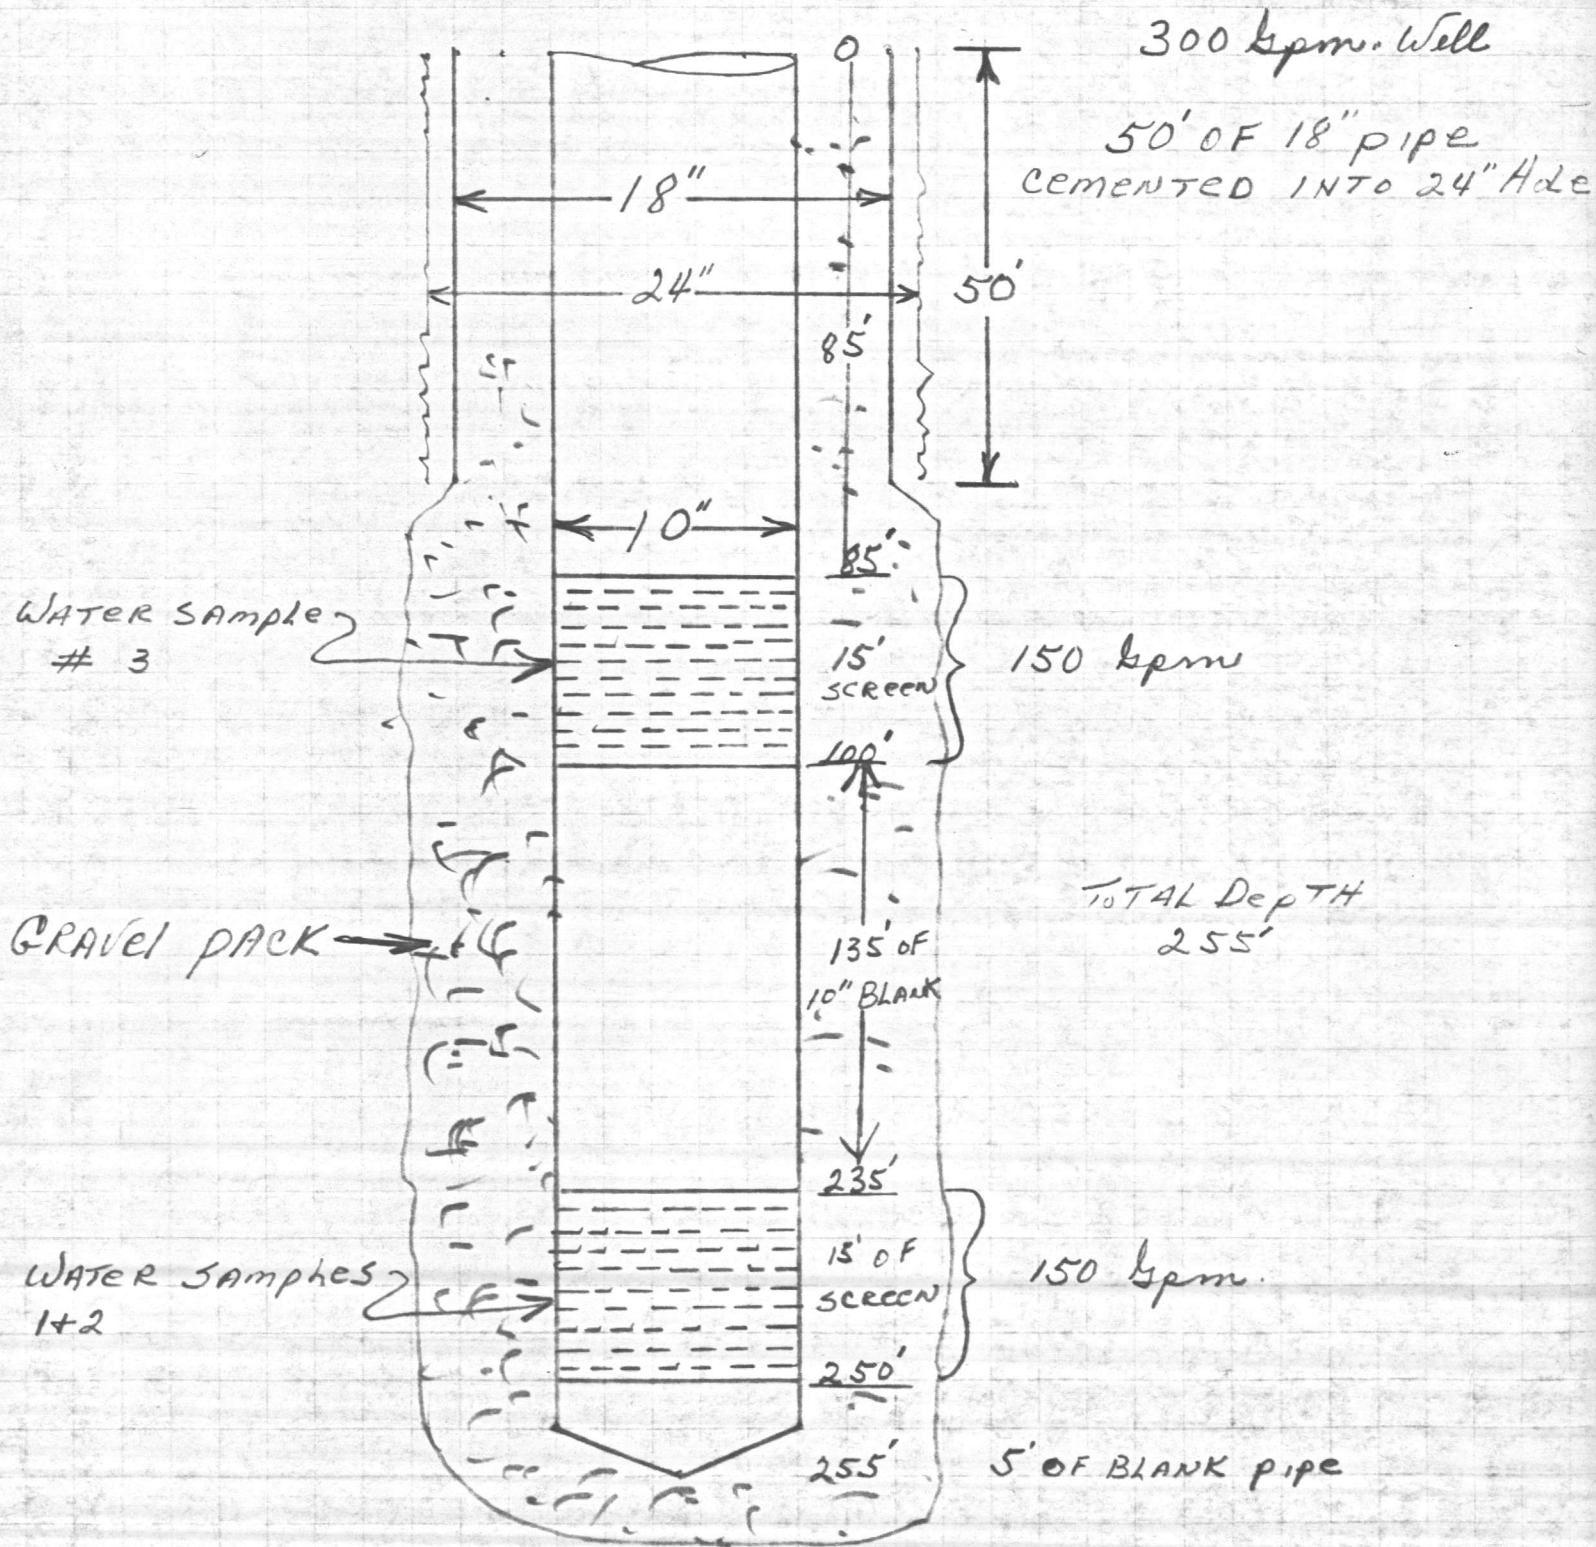 300 Gpm. Well
0
50' OF 18" pipe
CEMENTED INTO 24" Hole
18"
24"
50'
85'
10"
85'
WATER SAMPLE
# 3
15'
SCREEN
150 Gpm
100'
TOTAL DEPTH
255'
GRAVEL PACK
135' OF
10" BLANK
235'
WATER SAMPLES
1+2
15' OF
SCREEN
150 Gpm.
250'
255'
5' OF BLANK pipe